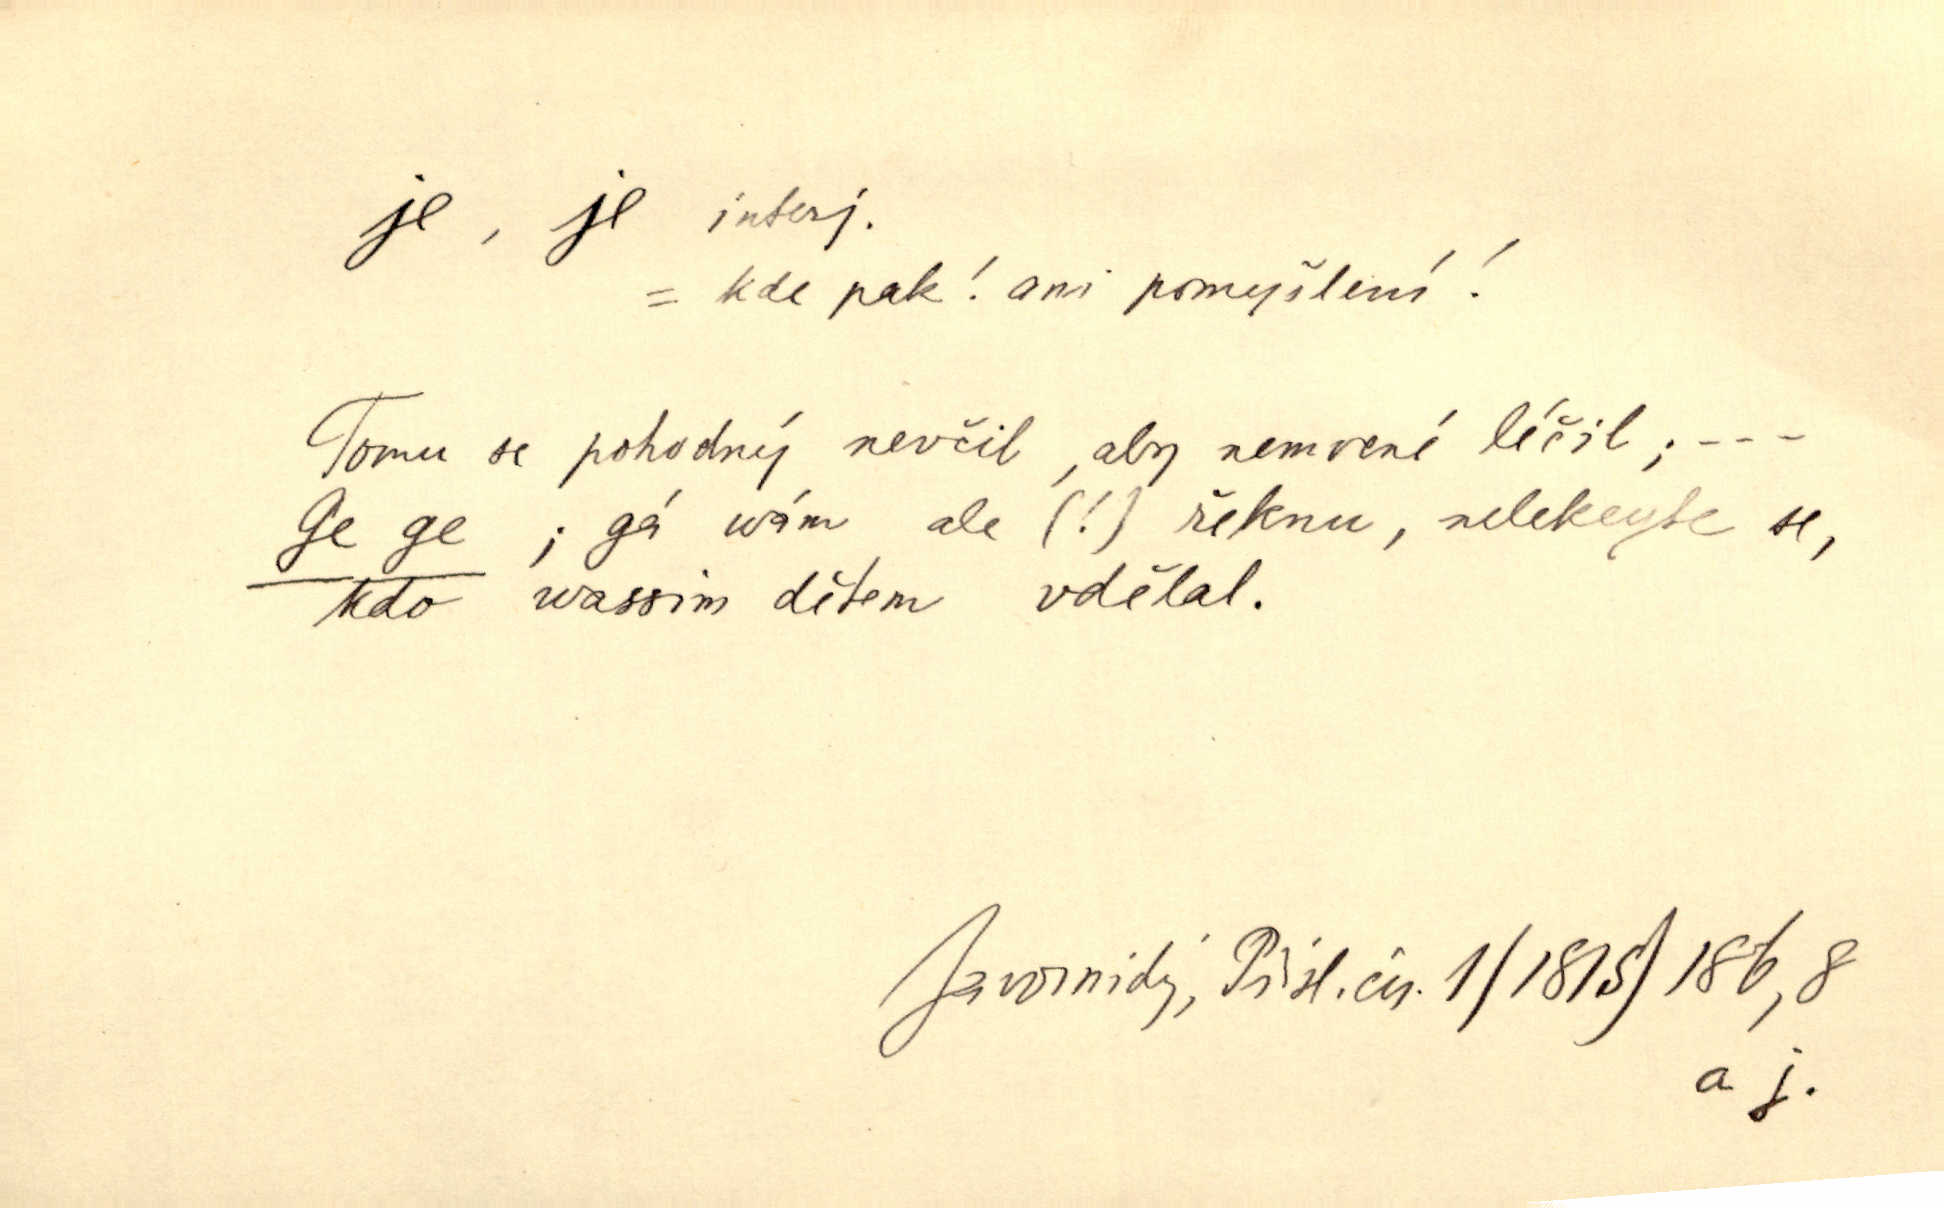 je, je interj.
= kde pak! ani pomyšlení!
Tomu se pohodný nevčil, aby nemocné léčil; ---
Ge ge ; gá wám ale (!) řeknu, nelekeyte se,
kdo wassim dětem vdělal.
Javornický, Přísl. čes. 1/1815/186, 8
a j.